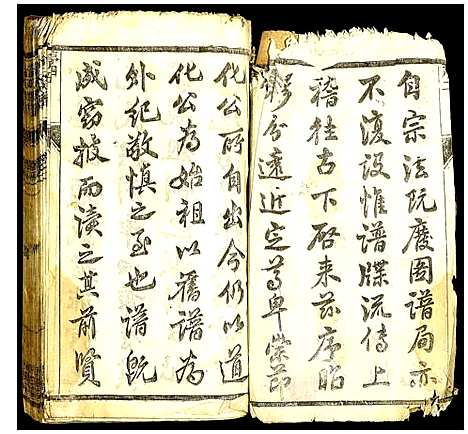 自宗法既廢圖譜局亦
不復設惟譜牒流傳上
稽往古下啓來茲序昭
穆分遠近定尊卑崇節
化公所自出今仍以道
化公為始祖以舊譜為
外紀敬慎之至也譜既
成窃披而讀之其前賢